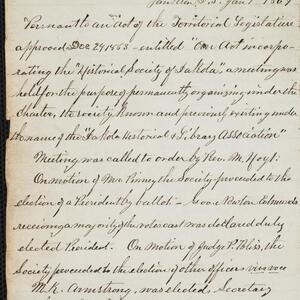 Yankton, D.T. Jany 1869
Persuant to an "Act of the Territorial Legislature
approved Dec 29 1868 - entitled "An Act incorpo-
rating the "Historical Society of Dakota," a meeting was
held for the purpose of permanently organizing under the
Charter, the society known and previously existing under
the name of the "Dakota Historical & Library Association"
Meeting was called to order by Rev. M. Hoyt.
On motion of Mr. Pinney the Society proceeded to the
election of a President by ballot. Gov.
receiving a majority of the votes cast was declared duly
elected President. On motion of Judge P. Bliss, the
Society proceeded to the election of other officers
M. K. Armstrong, was elected, Secretary